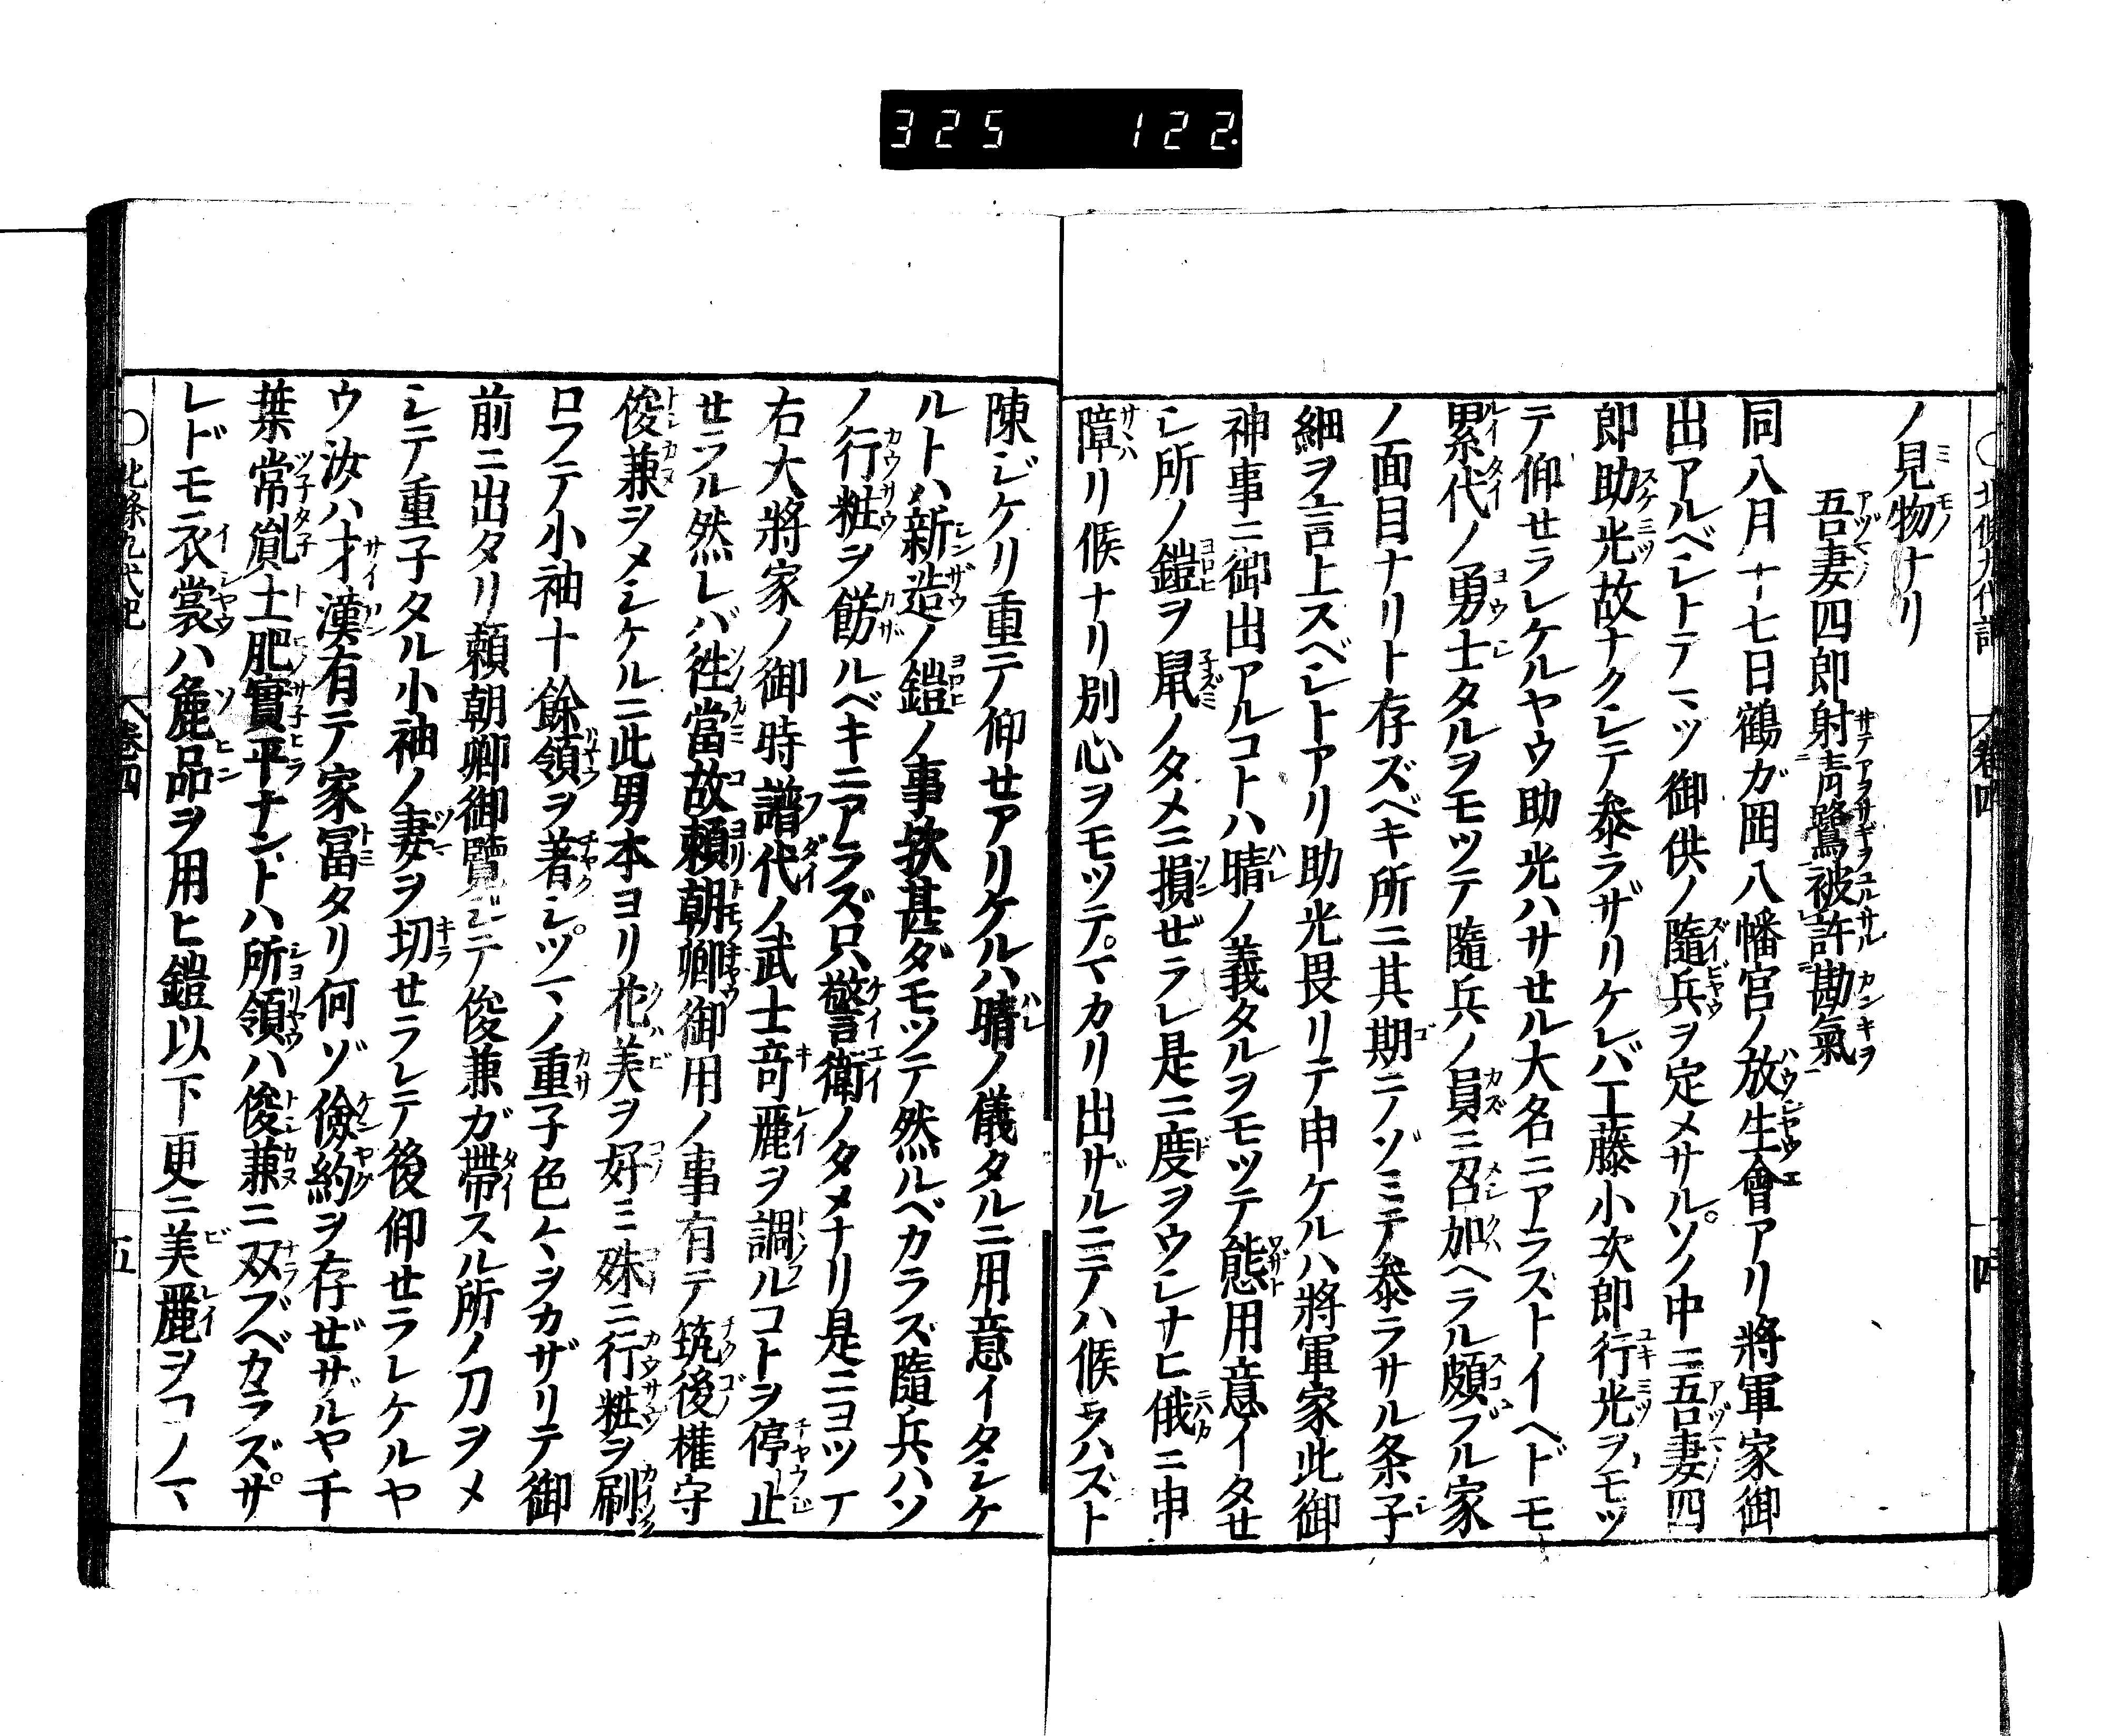 325 122.
○北條九代記 卷四 四
ノ見物ナリ
吾妻四郎射青鷺被許勘氣
同八月十七日鶴ガ岡八幡宮ノ放生會アリ將軍家御
出アルベシトテマヅ御供ノ隨兵ヲ定メサル。ソノ中ニ吾妻四
郎助光故ナクシテ參ラザリケレバ工藤小次郎行光ヲモツ
テ仰セラレケルヤウ助光ハサセル大名ニアラズトイヘドモ
累代ノ勇士タルヲモツテ隨兵ノ員ニ召加ヘラル頗ブル家
ノ面目ナリト存ズベキ所ニ其期ニノゾミテ參ラサル条子
細ヲ言上スベシトアリ助光畏リテ申ケルハ將軍家此御
神事ニ御出アルコトハ晴ノ義タルヲモツテ態用意イタセ
シ所ノ鎧ヲ鼠ノタメニ損ぜラレ是ニ度ヲウシナヒ俄ニ申
障リ候ナリ別心ヲモツテ。マカリ出ザルニテハ候ラハズト
陳ジケリ重テ仰セアリケルハ晴ノ儀タルニ用意イタシケ
ルトハ新造ノ鎧ノ事歟甚ダモツテ然ルベカラズ隨兵ハソ
ノ行粧ヲ餝ルベキニアラズ只警衛ノタメナリ是ニヨツテ
右大將家ノ御時譜代ノ武士竒麗ヲ調ルコトヲ停止
せラル然レバ徃當故賴朝卿御用ノ事有テ筑後權守
俊兼ヲメシケルニ此男本ヨリ花美ヲ好ミ殊ニ行粧ヲ刷
ロフテ小袖十餘領ヲ著シ。ツマノ重子色々ヲカザリテ御
前ニ出タリ賴朝卿御覽ジテ俊兼ガ帶スル所ノ刀ヲメ
シテ重子タル小袖ノ妻ヲ切せラレテ後仰せラレケルヤ
ウ汝ハ才漢有テ家冨タリ何ゾ儉約ヲ存ぜザルヤ千
葉常胤土肥實平ナンドハ所領ハ俊兼ニ双ブベカラズ。サ
レドモ衣裳ハ麁品ヲ用ヒ鎧以下更ニ美麗ヲコノマ
○北條九代記 卷四 五